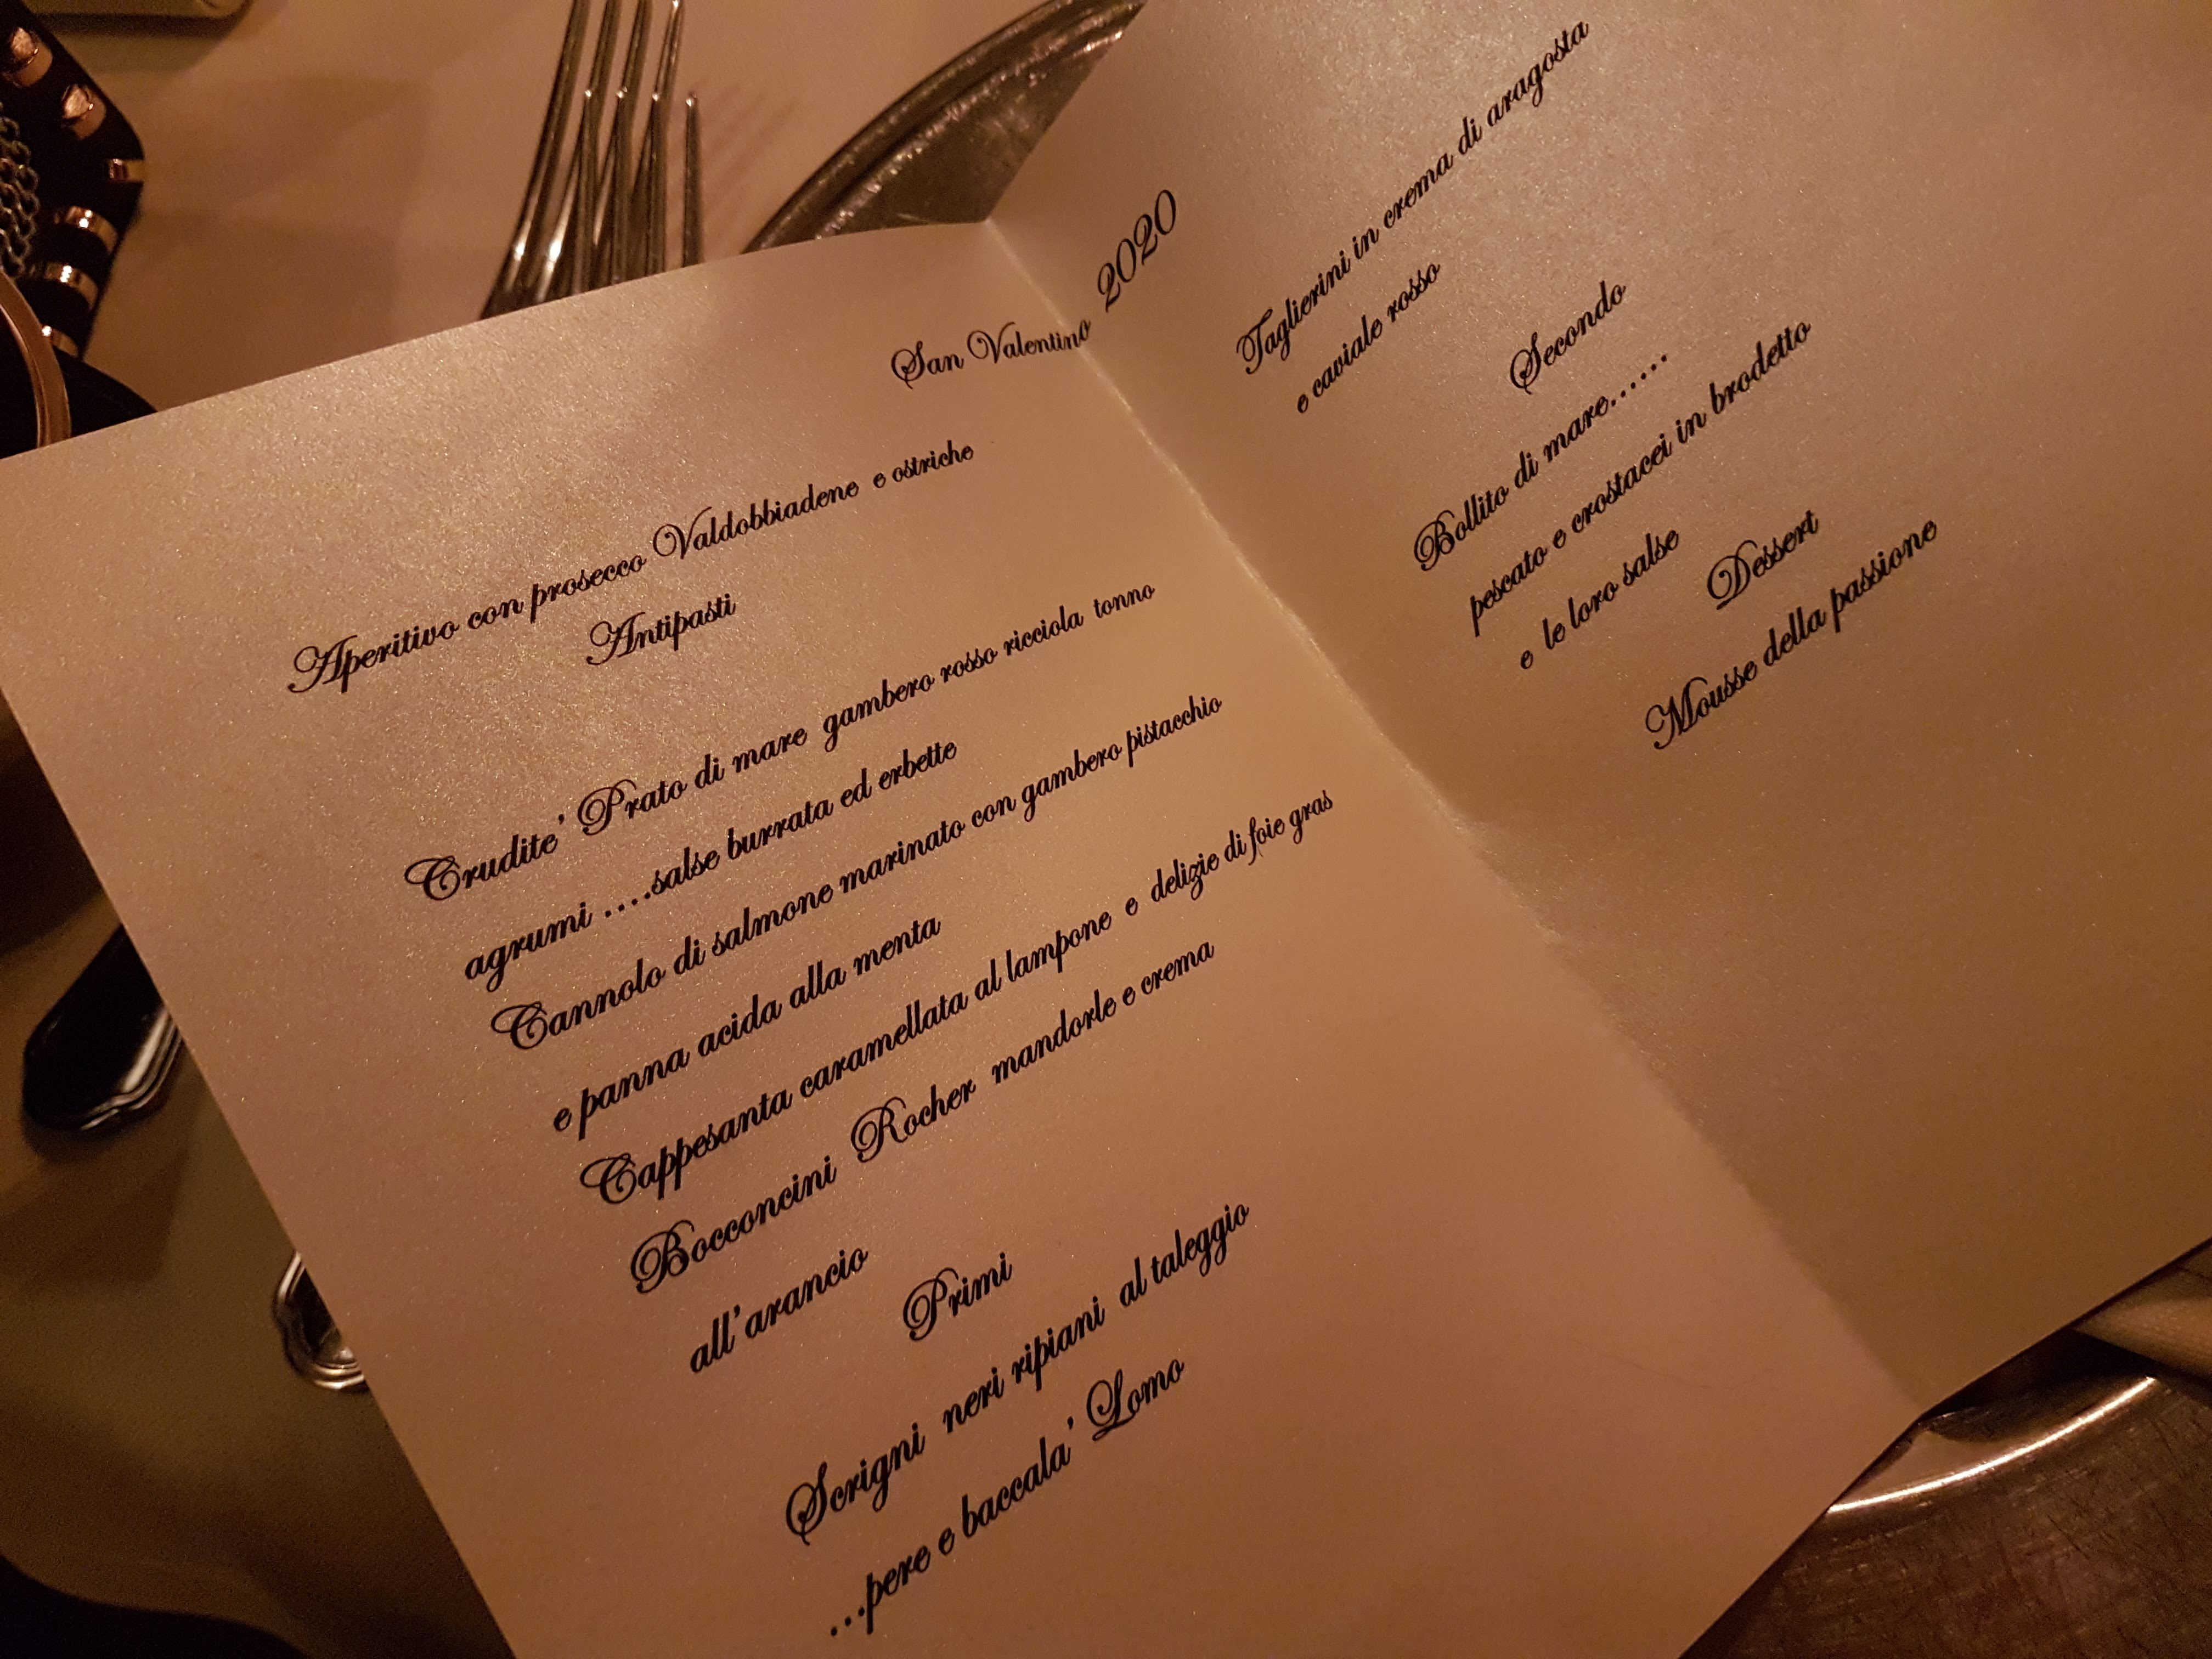 San Valentino 2020
Aperitivo con prosecco Valdobbiadene e ostriche
Antipasti
Crudite' Prato di mare gambero rosso ricciola tonno
agrumi ....salse burrata ed erbette
Cannolo di salmone marinato con gambero pistacchio
e panna acida alla menta
Cappesanta caramellata al lampone e delizie di foie gras
Bocconcini Rocher mandorle e crema
all'arancio
Primi
Scrigni neri ripiani al taleggio
...pere e baccala' Lomo
Taglierini in crema di aragosta
e caviale rosso
Secondo
Bollito di mare......
pescato e crostacei in brodetto
e le loro salse
Dessert
Mousse della passione